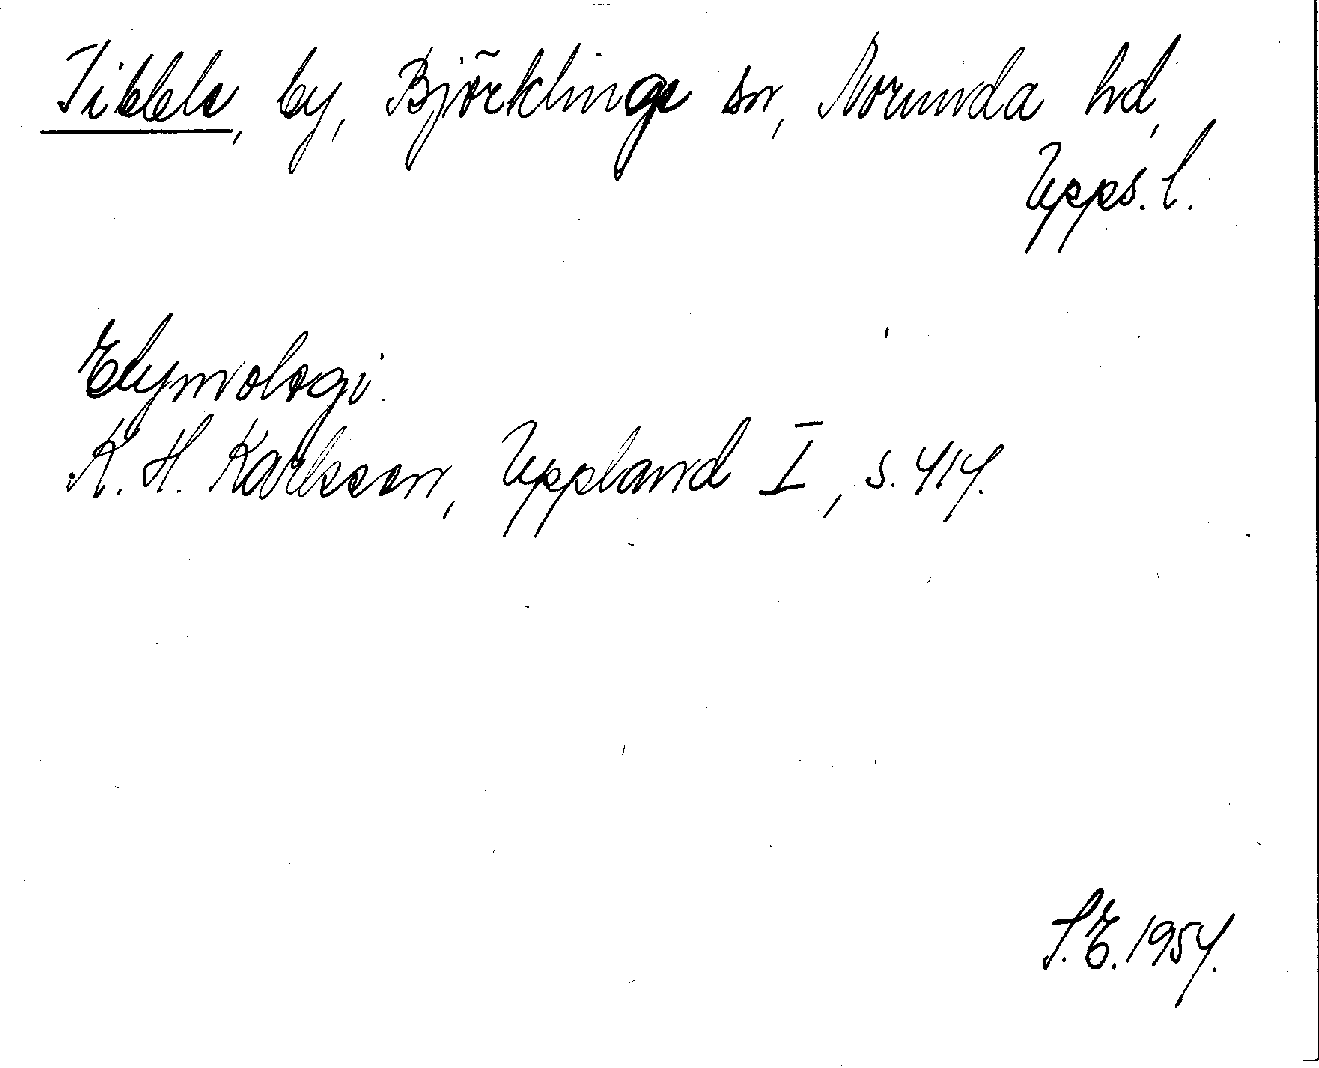 Tibble, by, Björklinge sn, Norunda hd,
Upps. l.
Etymologi.
K. H. Karlsson, Uppland I, s. 414.
S.E. 1954.